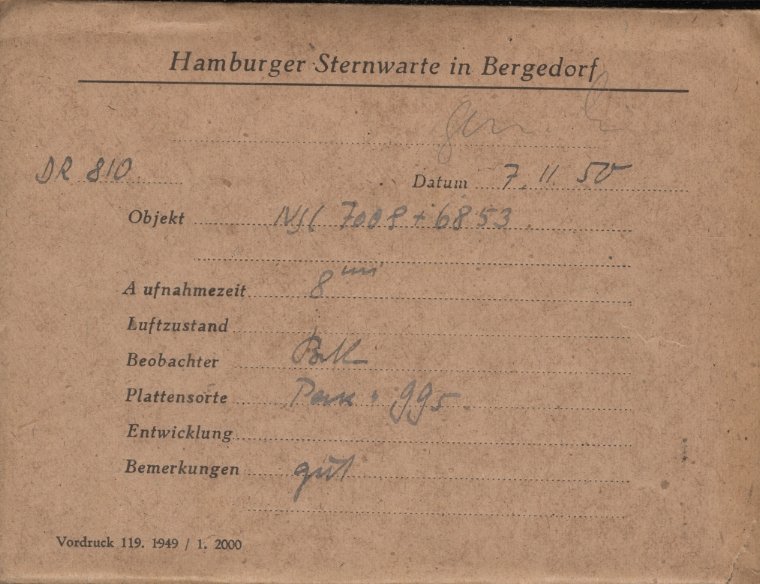 Hamburger Sternwarte in Bergedorf
DR 810
Datum 7. 11. 50
Objekt NGC 7009 + 6853
Aufnahmezeit 8 min
Luftzustand
Beobachter
Plattensorte 995.
Entwicklung
Bemerkungen gut
Vordruck 119. 1949 / 1. 2000